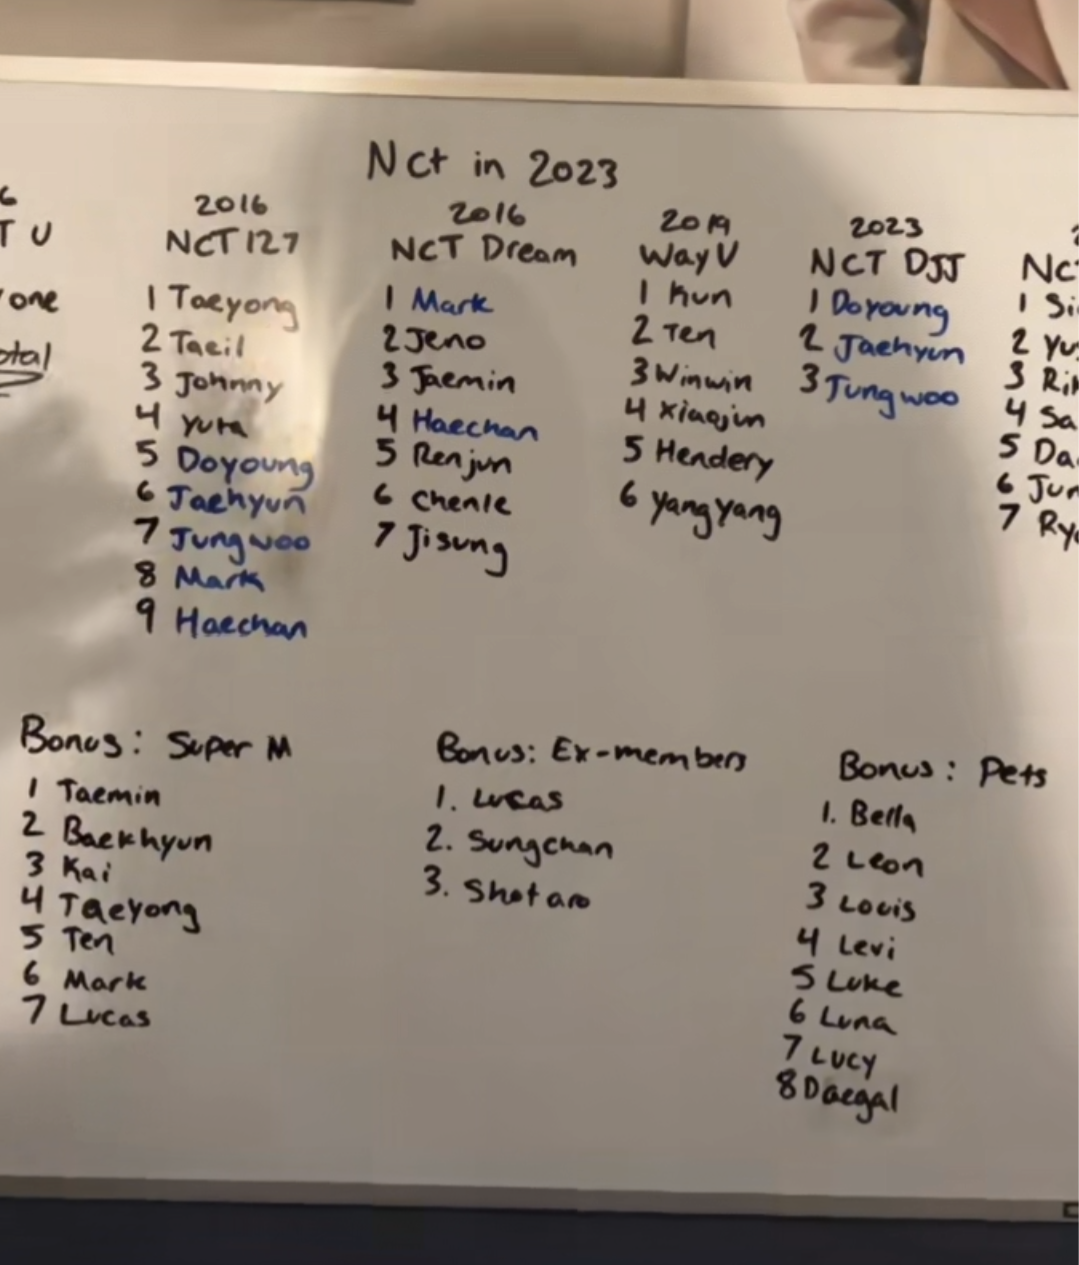 Nct in 2023
6
T U
one
otal
2016
NCT 127
1 Taeyong
2 Taeil
3 Johnny
4 Yuta
5 Doyoung
6 Jaehyun
7 Jungwoo
8 Mark
9 Haechan
2016
NCT Dream
1 Mark
2 Jeno
3 Jaemin
4 Haechan
5 Renjun
6 Chenle
7 Jisung
2019
WayV
1 Kun
2 Ten
3 Winwin
4 Xiaojun
5 Hendery
6 YangYang
2023
NCT DJJ
1 Doyoung
2 Jaehyun
3 Jungwoo
2
NC
1 Si
2 Yu
3 Ri
4 Sa
5 Da
6 Jun
7 Ry
Bonus: Super M
1 Taemin
2 Baekhyun
3 Kai
4 Taeyong
5 Ten
6 Mark
7 Lucas
Bonus: Ex-members
1. Lucas
2. Sungchan
3. Shotaro
Bonus: Pets
1. Bella
2 Leon
3 Louis
4 Levi
5 Luke
6 Luna
7 Lucy
8 Daegal